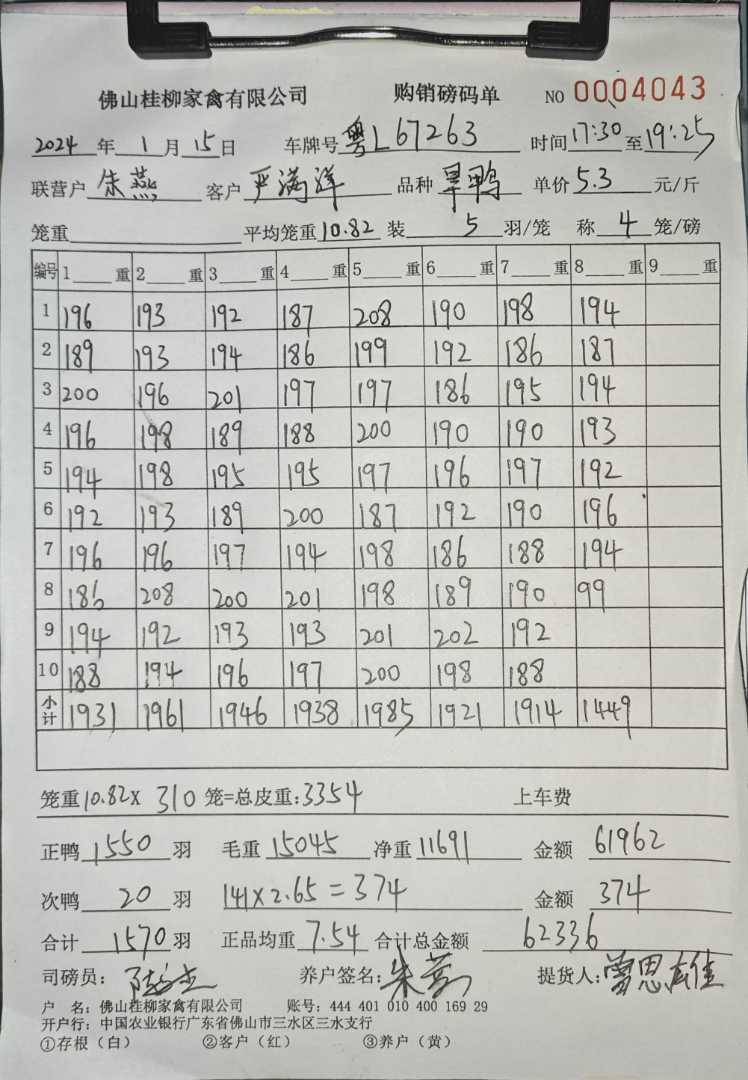 佛山桂柳家禽有限公司 购销磅码单 NO 0004043
2024年1月15日 车牌号粤L67263 时间17:30至19:25
联营户朱燕 客户严满洋 品种旱鸭 单价5.3元/斤
笼重 平均笼重10.82 装5羽/笼 称4笼/磅
编号 1 重 2 重 3 重 4 重 5 重 6 重 7 重 8 重 9 重
1 196 193 192 187 208 190 198 194
2 189 193 194 186 199 192 186 187
3 200 196 201 197 197 186 195 194
4 196 198 189 188 200 190 190 193
5 194 198 195 195 197 196 197 192
6 192 193 189 200 187 192 190 196
7 196 196 197 194 198 186 188 194
8 186 208 200 201 198 189 190 99
9 194 192 193 193 201 202 192
10 188 194 196 197 200 198 188
小计 1931 1961 1946 1938 1985 1921 1914 1449
笼重10.82X 310笼=总皮重:3354 上车费
正鸭1550羽 毛重15045 净重11691 金额61962
次鸭20羽 141X2.65=374 金额374
合计1570羽 正品均重7.54 合计总金额62336
司磅员: 养户签名:朱燕 提货人:
户 名:佛山桂柳家禽有限公司 账号:444 401 010 400 169 29
开户行:中国农业银行广东省佛山市三水区三水支行
①存根(白) ②客户(红) ③养户(黄)